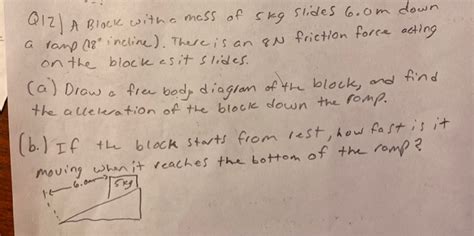 Q12) A Block with a mass of 5kg slides 6.0m down
a ramp (18° incline). There is an 8N friction force acting
on the block as it slides.
(a) Draw a free body diagram of the block, and find
the acceleration of the block down the ramp.
(b.) If the block starts from rest, how fast is it
moving when it reaches the bottom of the ramp?
6.0m
5kg